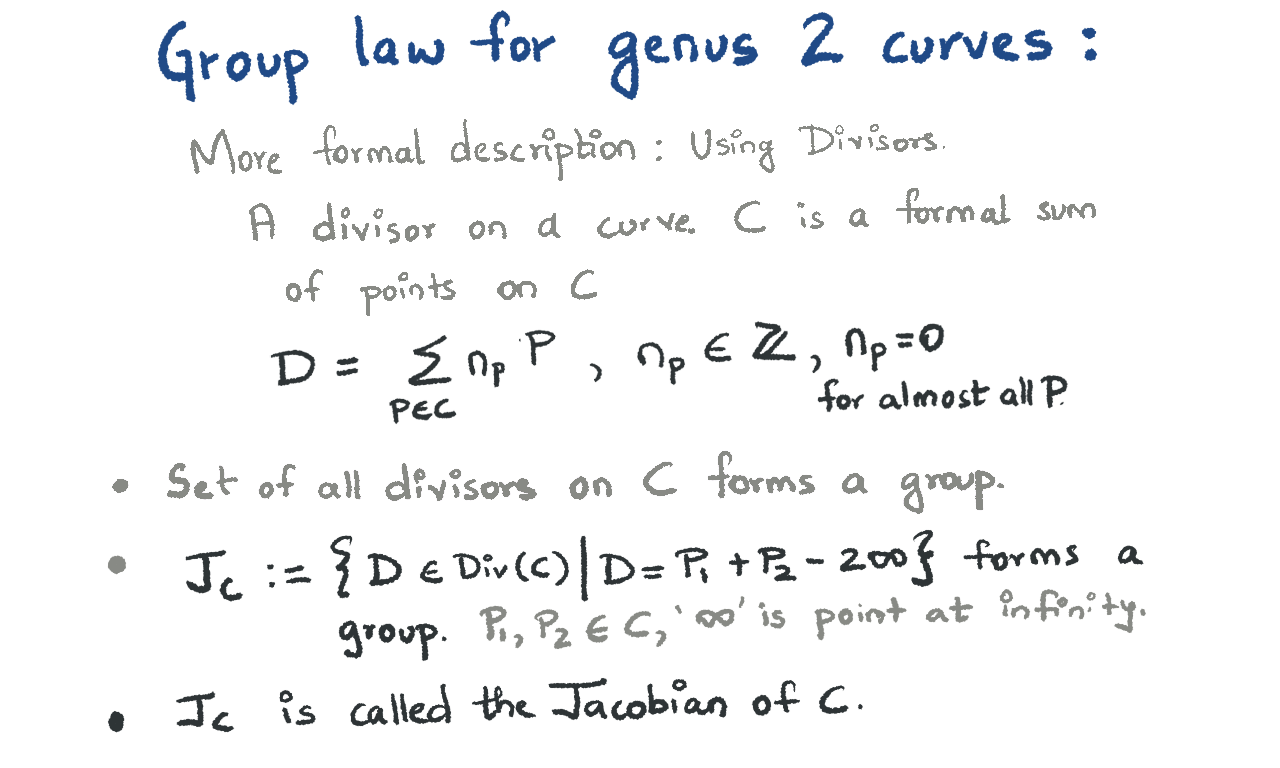 Group law for genus 2 curves :
More formal description : Using Divisors.
A divisor on a curve C is a formal sum
of points on C
D = ∑ n_P P , n_P ∈ ℤ, n_P = 0
P∈C
for almost all P.
• Set of all divisors on C forms a group.
• J_C := { D ∈ Div(C) | D = P₁ + P₂ - 2∞ } forms a
group. P₁, P₂ ∈ C, '∞' is point at infinity.
• J_C is called the Jacobian of C.